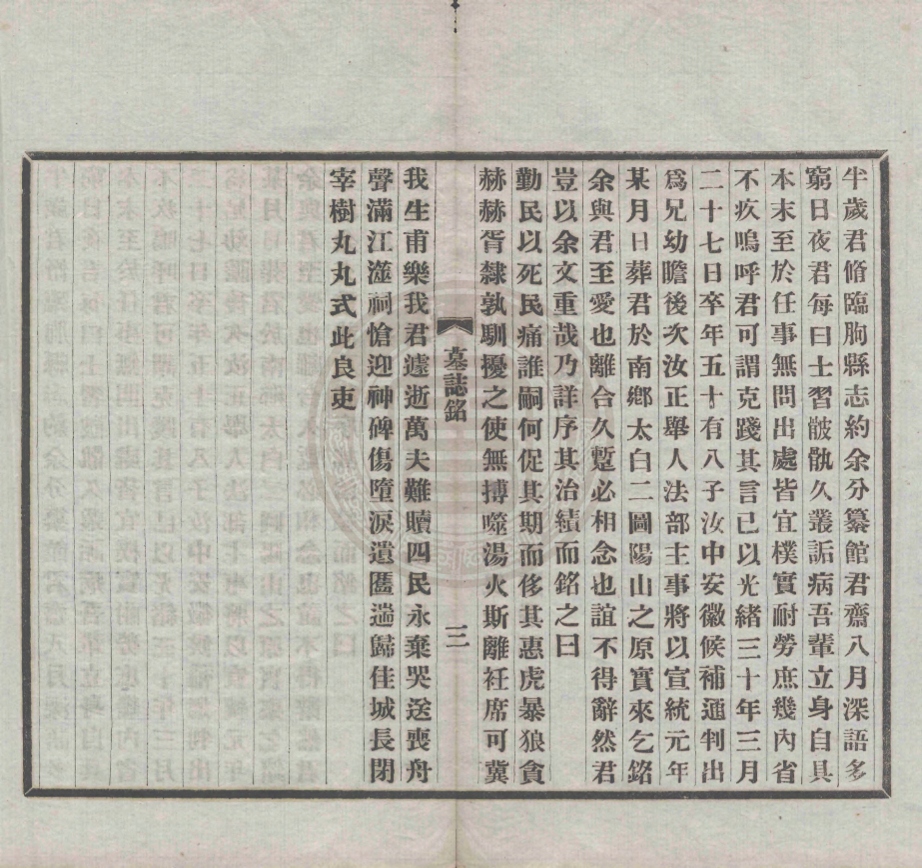 半歲君脩臨朐縣志約余分纂館君齋八月深語多
窮日夜君每曰士習骳骫久叢詬病吾輩立身自具
本末至於任事無問出處皆宜樸實耐勞庶幾內省
不疚嗚呼君可謂克踐其言已以光緒三十年三月
二十七日卒年五十有八子汝中安徽候補通判出
爲兄幼瞻後次汝正舉人法部主事將以宣統元年
某月日葬君於南鄉太白二圖陽山之原實來乞銘
余與君至愛也離合久蹔必相念也誼不得辭然君
豈以余文重哉乃詳序其治績而銘之曰
勤民以死民痛誰嗣何促其期而侈其惠虎暴狼貪
赫赫胥隸孰馴擾之使無搏噬湯火斯離衽席可冀
墓誌銘 三
我生甫樂我君遽逝萬夫難贖四民永棄哭送喪舟
聲滿江澨祠愴迎神碑傷墮淚遺匶遄歸佳城長閉
宰樹丸丸式此良吏